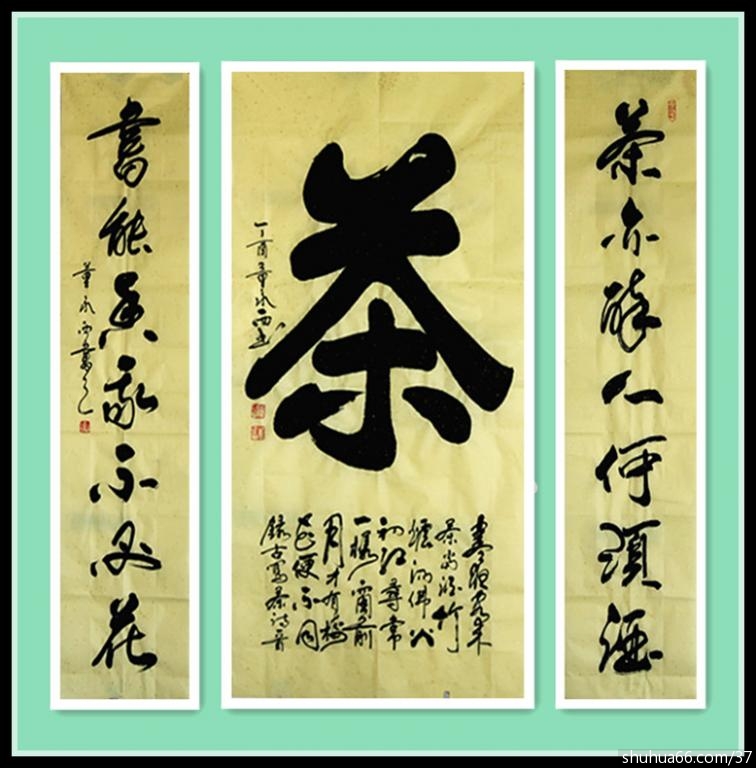 茶亦醉人何須酒
茶
寒夜客来
茶当酒竹
爐湯沸火
初红尋常
一樣窗前
月才有梅
花便不同
錄古寫茶詩
丁酉董永西書
書能香我不必花
董永西書
shuhua66.com/37